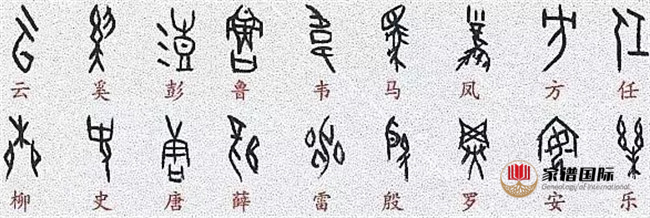 云 奚 彭 鲁 韦 马 凤 方 任
柳 史 唐 薛 雷 殷 罗 安 乐
家谱国际
Genealogy of International